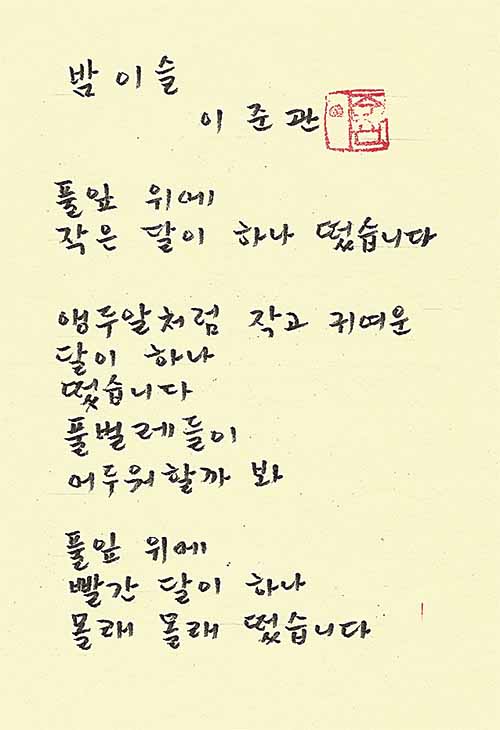 밤이슬
이준관
풀잎 위에
작은 달이 하나 떴습니다
앵두알처럼 작고 귀여운
달이 하나
떴습니다
풀벌레들이
어두워할까 봐
풀잎 위에
빨간 달이 하나
몰래 몰래 떴습니다